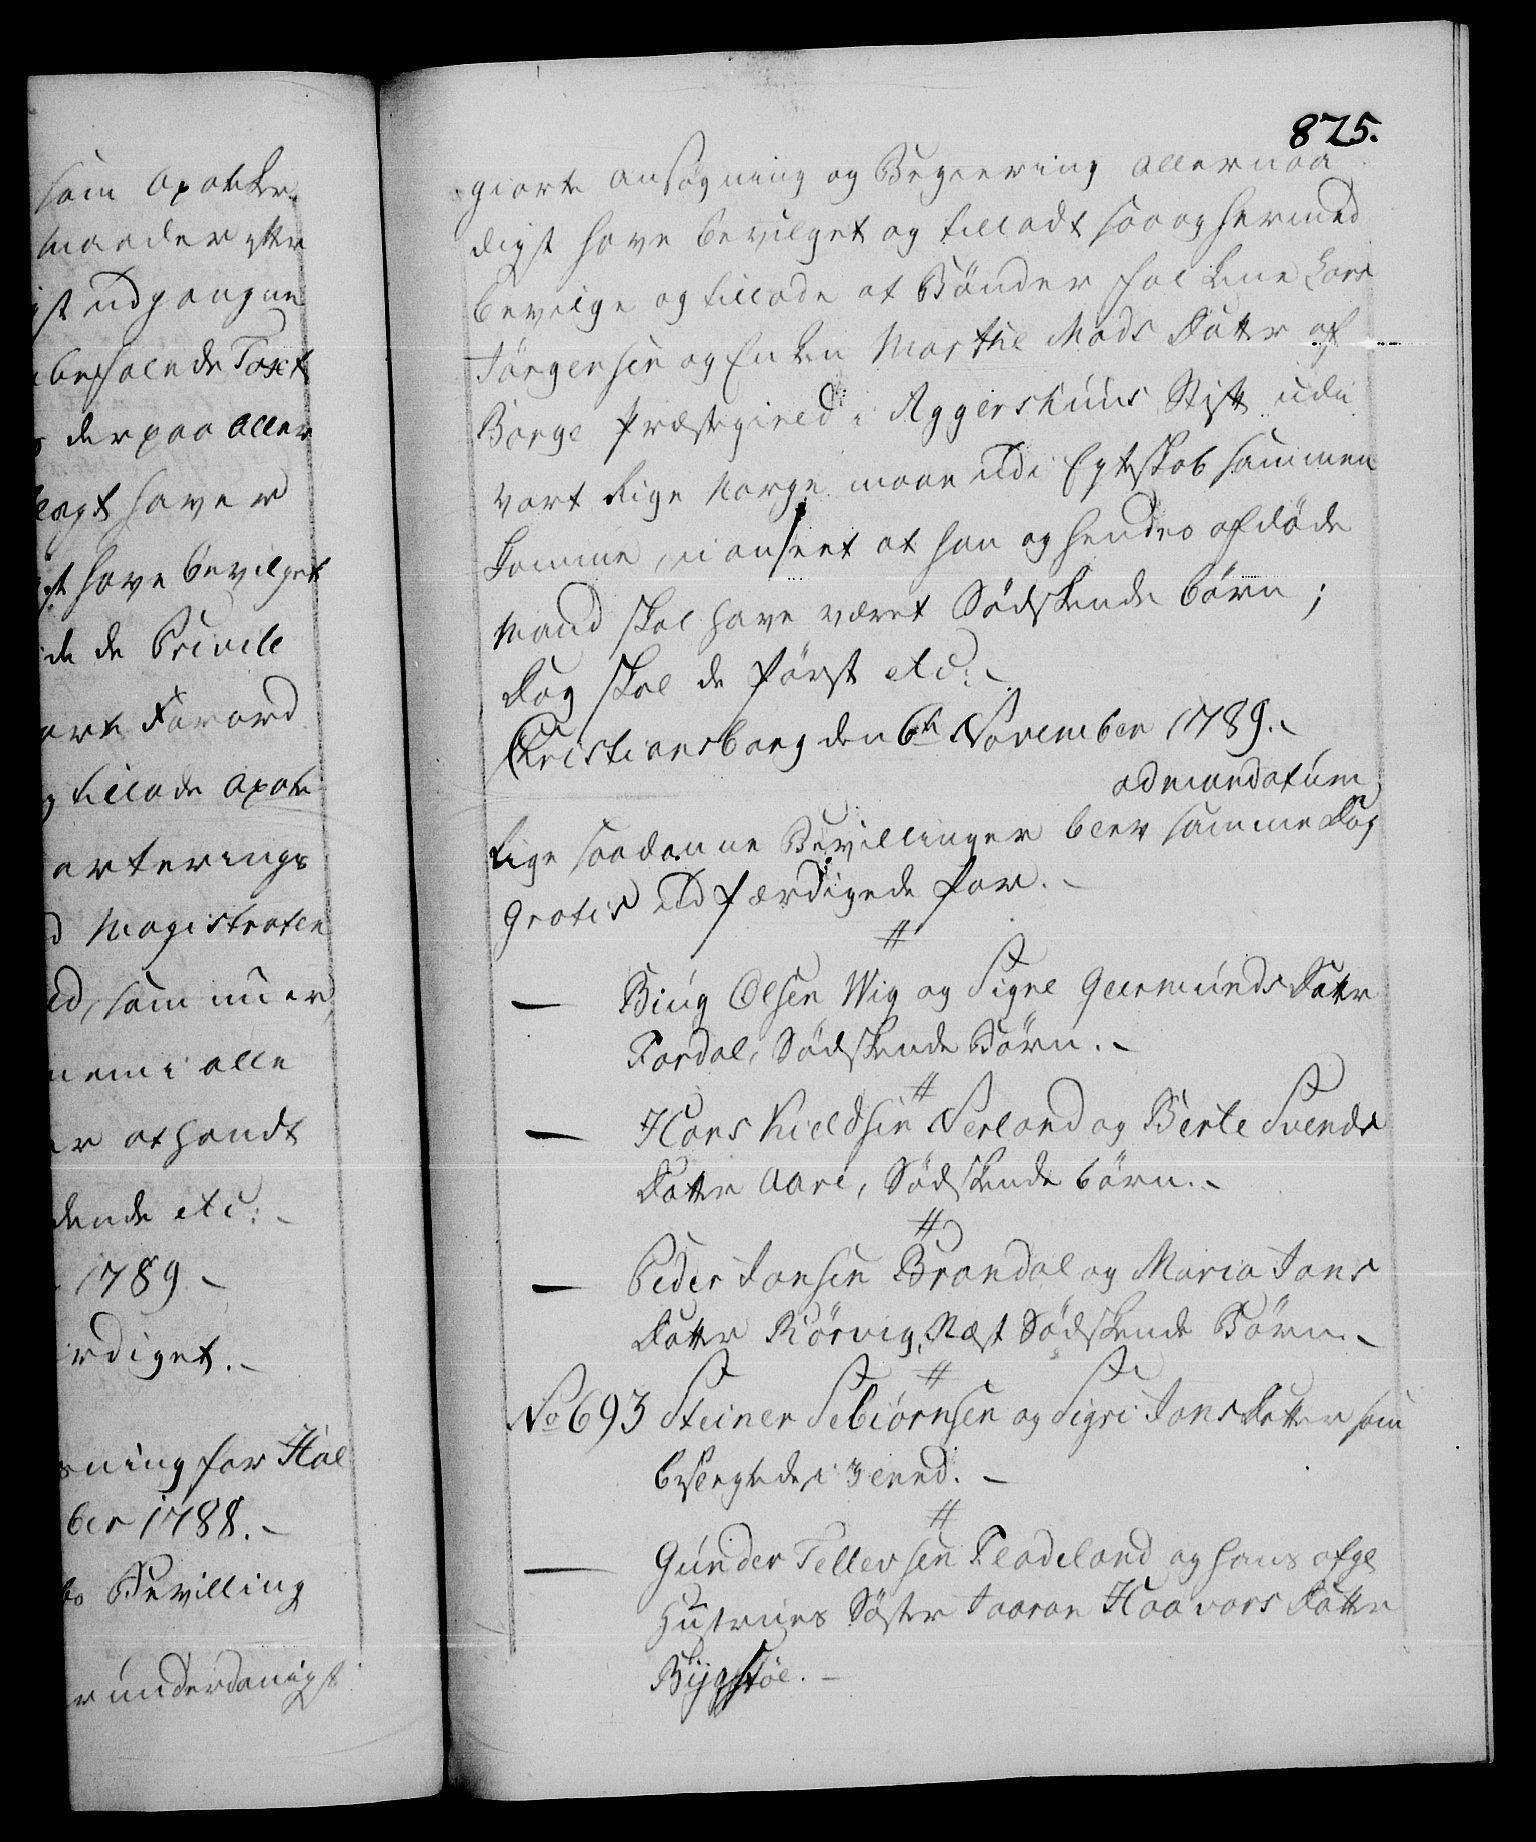 som Apoteker
maader ytte
gst udgangne
befalende Taxt
derpaa aller
lagt haver
gst have bevilget
de de Privile
vort Forord
g tillade Apote
qvarterings
d Magistraten
ed, som nu er
nem i alle
er athandt
dende etc:
1789
ærdiget.
sning for Hal
ber 1788.
Bevilling
r underdanigst
825.
giorte ansøgning og Begiering allernaa
digst have bevilget og tilladt saa og hermed
bevilge og tillade at Bønder Karl Lars
Jørgensen og Enken Marthe Mads Datter af
Borge Præstegield i Aggershuus Stift udi
vort Rige Norge maae udi Egteskab sammen
komme, uanseet at han og hendes afdøde
Mand skal have været Sødskende børn;
dog skal de først etc:
Christiansborg den 6te November 1789.
ad mandatum
Lige saadanne Bevillinger blev samme Dag
Gratis udfærdigede for.
Biug Olsen Wig og Signe Geermunds Datter
Fardal, Sødskende Børn.
Hans Kieldsen Nerland og Berte Svends
Datter Aare, Sødskende børn.
Peder Jansen Brandal og Maria Jans
Datter Kiørvig, Næst Sødskende Børn.
No 693 Steiner Sebiørnsen og Sigri Jans Datter som
besleglede i 3 leed.
Gunder Tellevsen Fladeland og hans afgl
Hustrues Søster Jaaran Haavors Datter
Bygstøl.